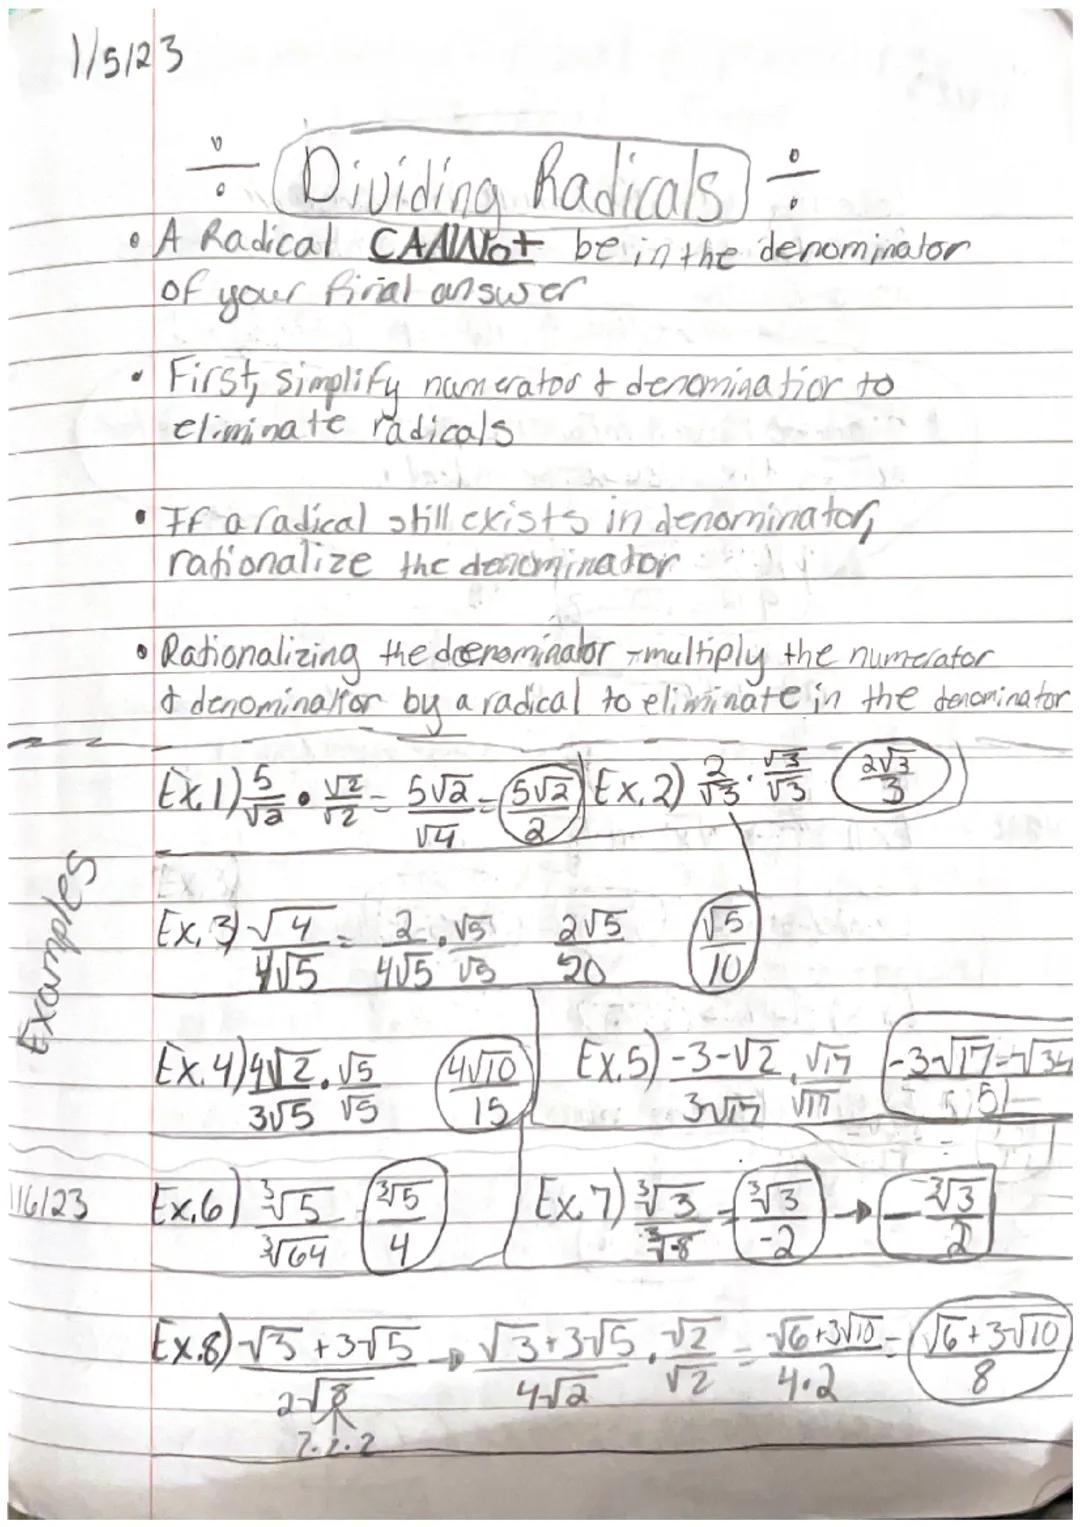 1/5/23
÷ Dividing Radicals ÷
• A Radical CANNot be in the denominator
of your final answer
• First, simplify numerator & denominatior to
eliminate radicals
• If a radical still exists in denominator,
rationalize the denominator
• Rationalizing the denominator - multiply the numerator
& denominator by a radical to eliminate in the denominator
Examples
Ex.1) 5/√2 • √2/√2 = 5√2/√4 = 5√2/2 Ex.2) 2/√3 · √3/√3 2√3/3
Ex.3) √4/4√5 = 2/4√5 · √5/√5 2√5/20 √5/10
Ex.4) 4√2/3√5 · √5/√5 4√10/15 Ex.5) -3-√2/3√17 · √17/√17 -3√17-√34/51
1/6/23 Ex.6) ³√5/³√64 = ³√5/4 Ex.7) ³√3/³√-8 = ³√3/-2 → -³√3/2
Ex.8) √3+3√5/2√8 → √3+3√5/4√2 · √2/√2 = √6+3√10/4·2 = √6+3√10/8
2·2·2